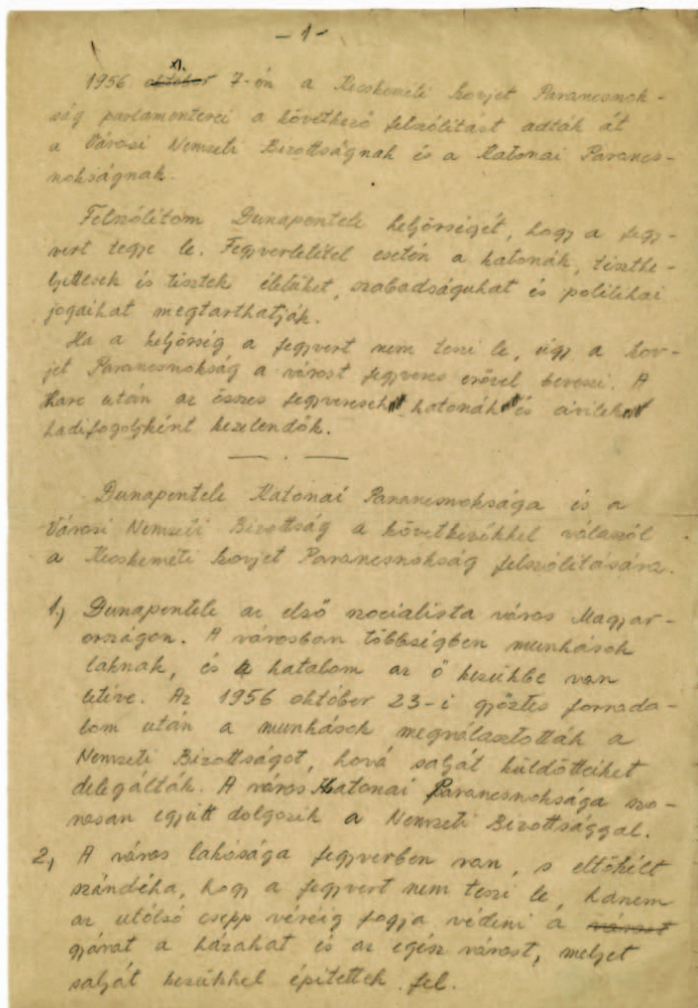 - 1 -
XI.
1956 október 7-én a Kecskeméti Szovjet Parancsnok-
ság parlamenterei a következő felszólítást adták át
a Városi Nemzeti Bizottságnak és a Katonai Parancs-
nokságnak.
Felszólítom Dunapentele helyőrségét, hogy a fegy-
vert tegye le. Fegyverletétel esetén a katonák, tiszthe-
lyettesek és tisztek életüket, szabadságukat és politikai
jogaikat megtarthatják.
Ha a helyőrség a fegyvert nem teszi le, úgy a Szov-
jet Parancsnokság a várost fegyveres erővel beveszi. A
harc után az összes fegyveresek katonák és civilek
hadifogolyként kezelendők.
Dunapentele Katonai Parancsnoksága és a
Városi Nemzeti Bizottság a következőkkel válaszol
a Kecskeméti Szovjet Parancsnokság felszólítására.
1, Dunapentele az első szocialista város Magyar-
országon. A városban többségben munkások
laknak, és a hatalom az ő kezükbe van
letéve. Az 1956 október 23-i győztes forrada-
lom után a munkások megválasztották a
Nemzeti Bizottságot, hová saját küldötteiket
delegálták. A város Katonai Parancsnoksága szo-
rosan együtt dolgozik a Nemzeti Bizottsággal.
2, A város lakósága fegyverben van, s eltökélt
szándéka, hogy a fegyvert nem teszi le, hanem
az utólsó csepp véréig fogja védeni a várost
gyárat a házakat és az egész várost, melyet
saját kezükkel építettek fel.